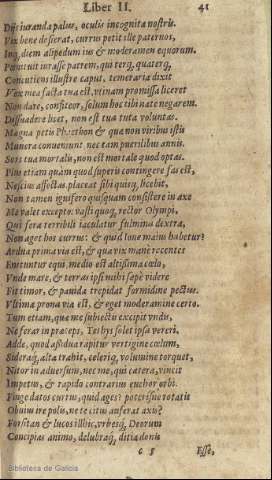 Liber II. 41
Dijs iuranda palus, oculis incognita nostris.
Vix bene desierat, currus petit ille paternos,
Inq́; diem alipedum ius & moderamen equorum.
Pœnituit iurasse patrem, qui terq́; quaterq́;
Concutiens illustre caput, temeraria dixit
Vox mea facta tua est, vtinam promissa liceret
Non dare, confiteor, solum hoc tibi nate negarem.
Dissuadere licet, non est tua tuta voluntas.
Magna petis Phaëthon & quæ non viribus istis
Munera conueniunt nec tam puerilibus annis.
Sors tua mortalis, non est mortale quod optas.
Plus etiam quam quod superis contingere fas est,
Nescius affectas. placeat sibi quisq́; licebit,
Non tamen ignifero quisquam consistere in axe
Me valet excepto. vasti quoq́; rector Olympi,
Qui fera terribili iaculatur fulmina dextra,
Non aget hos currus: & quid Ioue maius habetur?
Ardua prima via est, & qua vix manè recentes
Enituntur equi, medio est altißima cœlo,
Vnde mare, & terras ipsi mihi sæpè videre
Fit timor, & pauida trepidat formidine pectus.
Vltima prona via est, & eget moderamine certo.
Tum etiam, quæ me subiectis excipit vndis,
Ne ferar in præceps, Tethys solet ipsa vereri.
Adde, quod aßidua rapitur vertigine cœlum,
Sideraq́; alta trahit, celeriq́; volumine torquet,
Nitor in aduersum, nec me, qui cætera, vincit
Impetus, & rapido contrarius euehor orbi.
Finge datos currus, quid ages? poterisne rotatis
Obuius ire polis, ne te citus auferat axis?
Forsitan & lucos illic, vrbesq́; Deorum
Concipias animo, delubraq́; ditia donis
G 5 Esse,
Biblioteca de Galicia